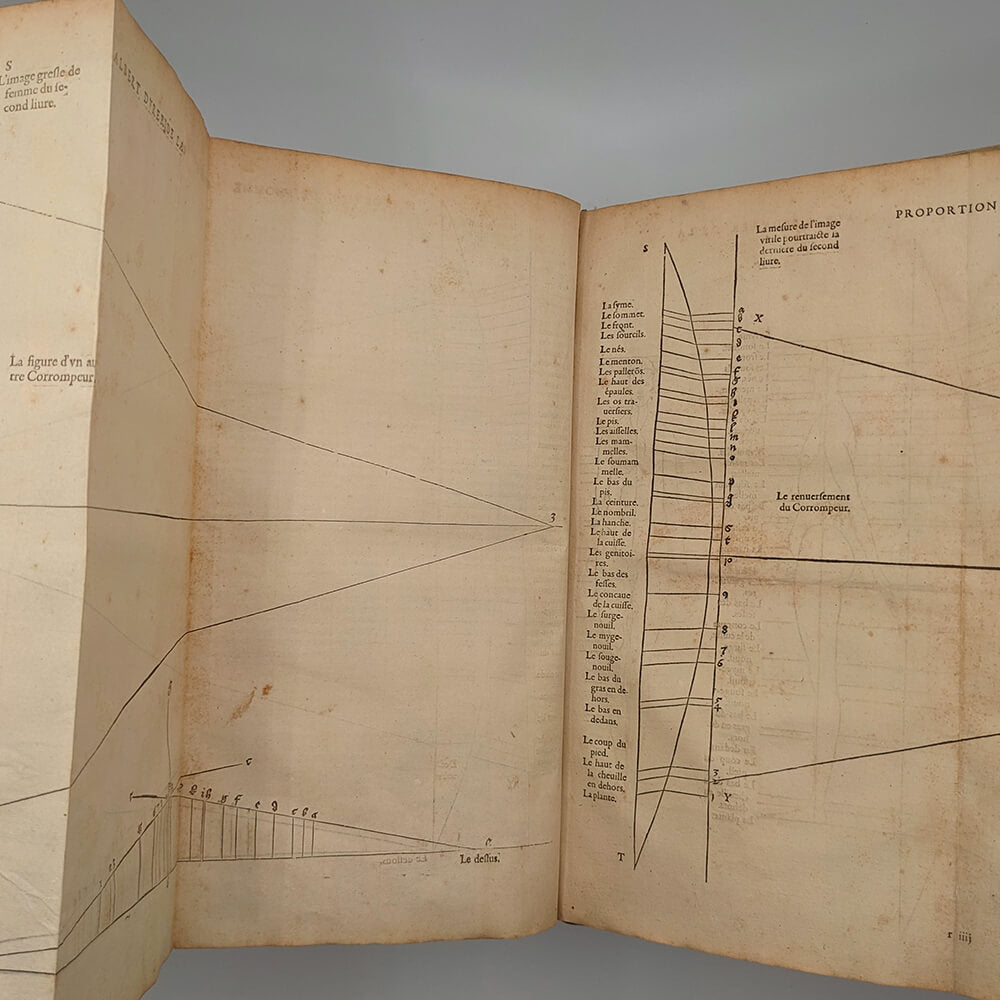 S
L'image gresle de
femme du se-
cond liure.
ALBERT DVRER DE LA
La figure d'vn au
tre Corrompeur,
3
c
Le dessus.
PROPORTION
La mesure de l'image
virile pourtraicte la
derniere du second
liure.
S
X
La syme.
Le sommet.
Le front.
Les sourcils.
Le nés.
Le menton.
Les pallerōs.
Le haut des
épaules.
Les os tra-
uersiers.
Le pis.
Les aisselles.
Les mam-
melles.
Le soumam
melle.
Le bas du
pis.
La ceinture.
Le nombril.
La hanche.
Le haut de
la cuisse.
Les genitoi-
res.
Le bas des
fesses.
Le concaue
de la cuisse.
Le surge-
nouil.
Le myge-
nouil.
Le souge-
nouil.
Le bas du
gras en de-
hors.
Le bas en
dedans.
Le coup du
pied.
Le haut de
la cheuille
en dehors.
La plante.
Le renuersement
du Corrompeur.
10
9
8
7
6
5
4
3
2
1
Y
T
r iiij